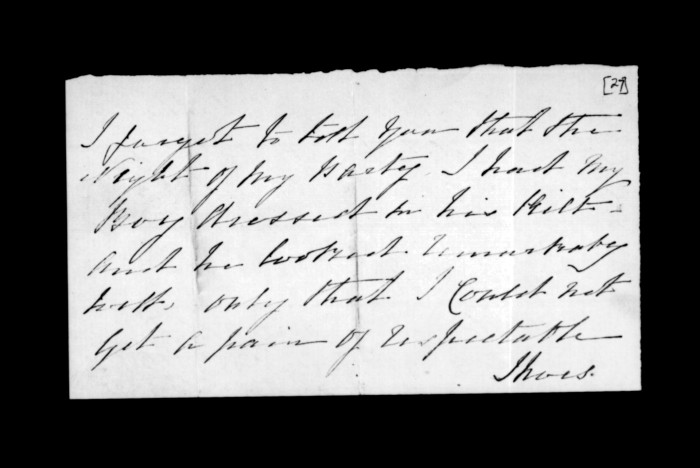 [27]
I forget to tell you that the
Night of my Party I had my
Boy dressed in his Kilt -
and he looked remarkably
well, only that I could not
get a pair of respectable
Shoes.